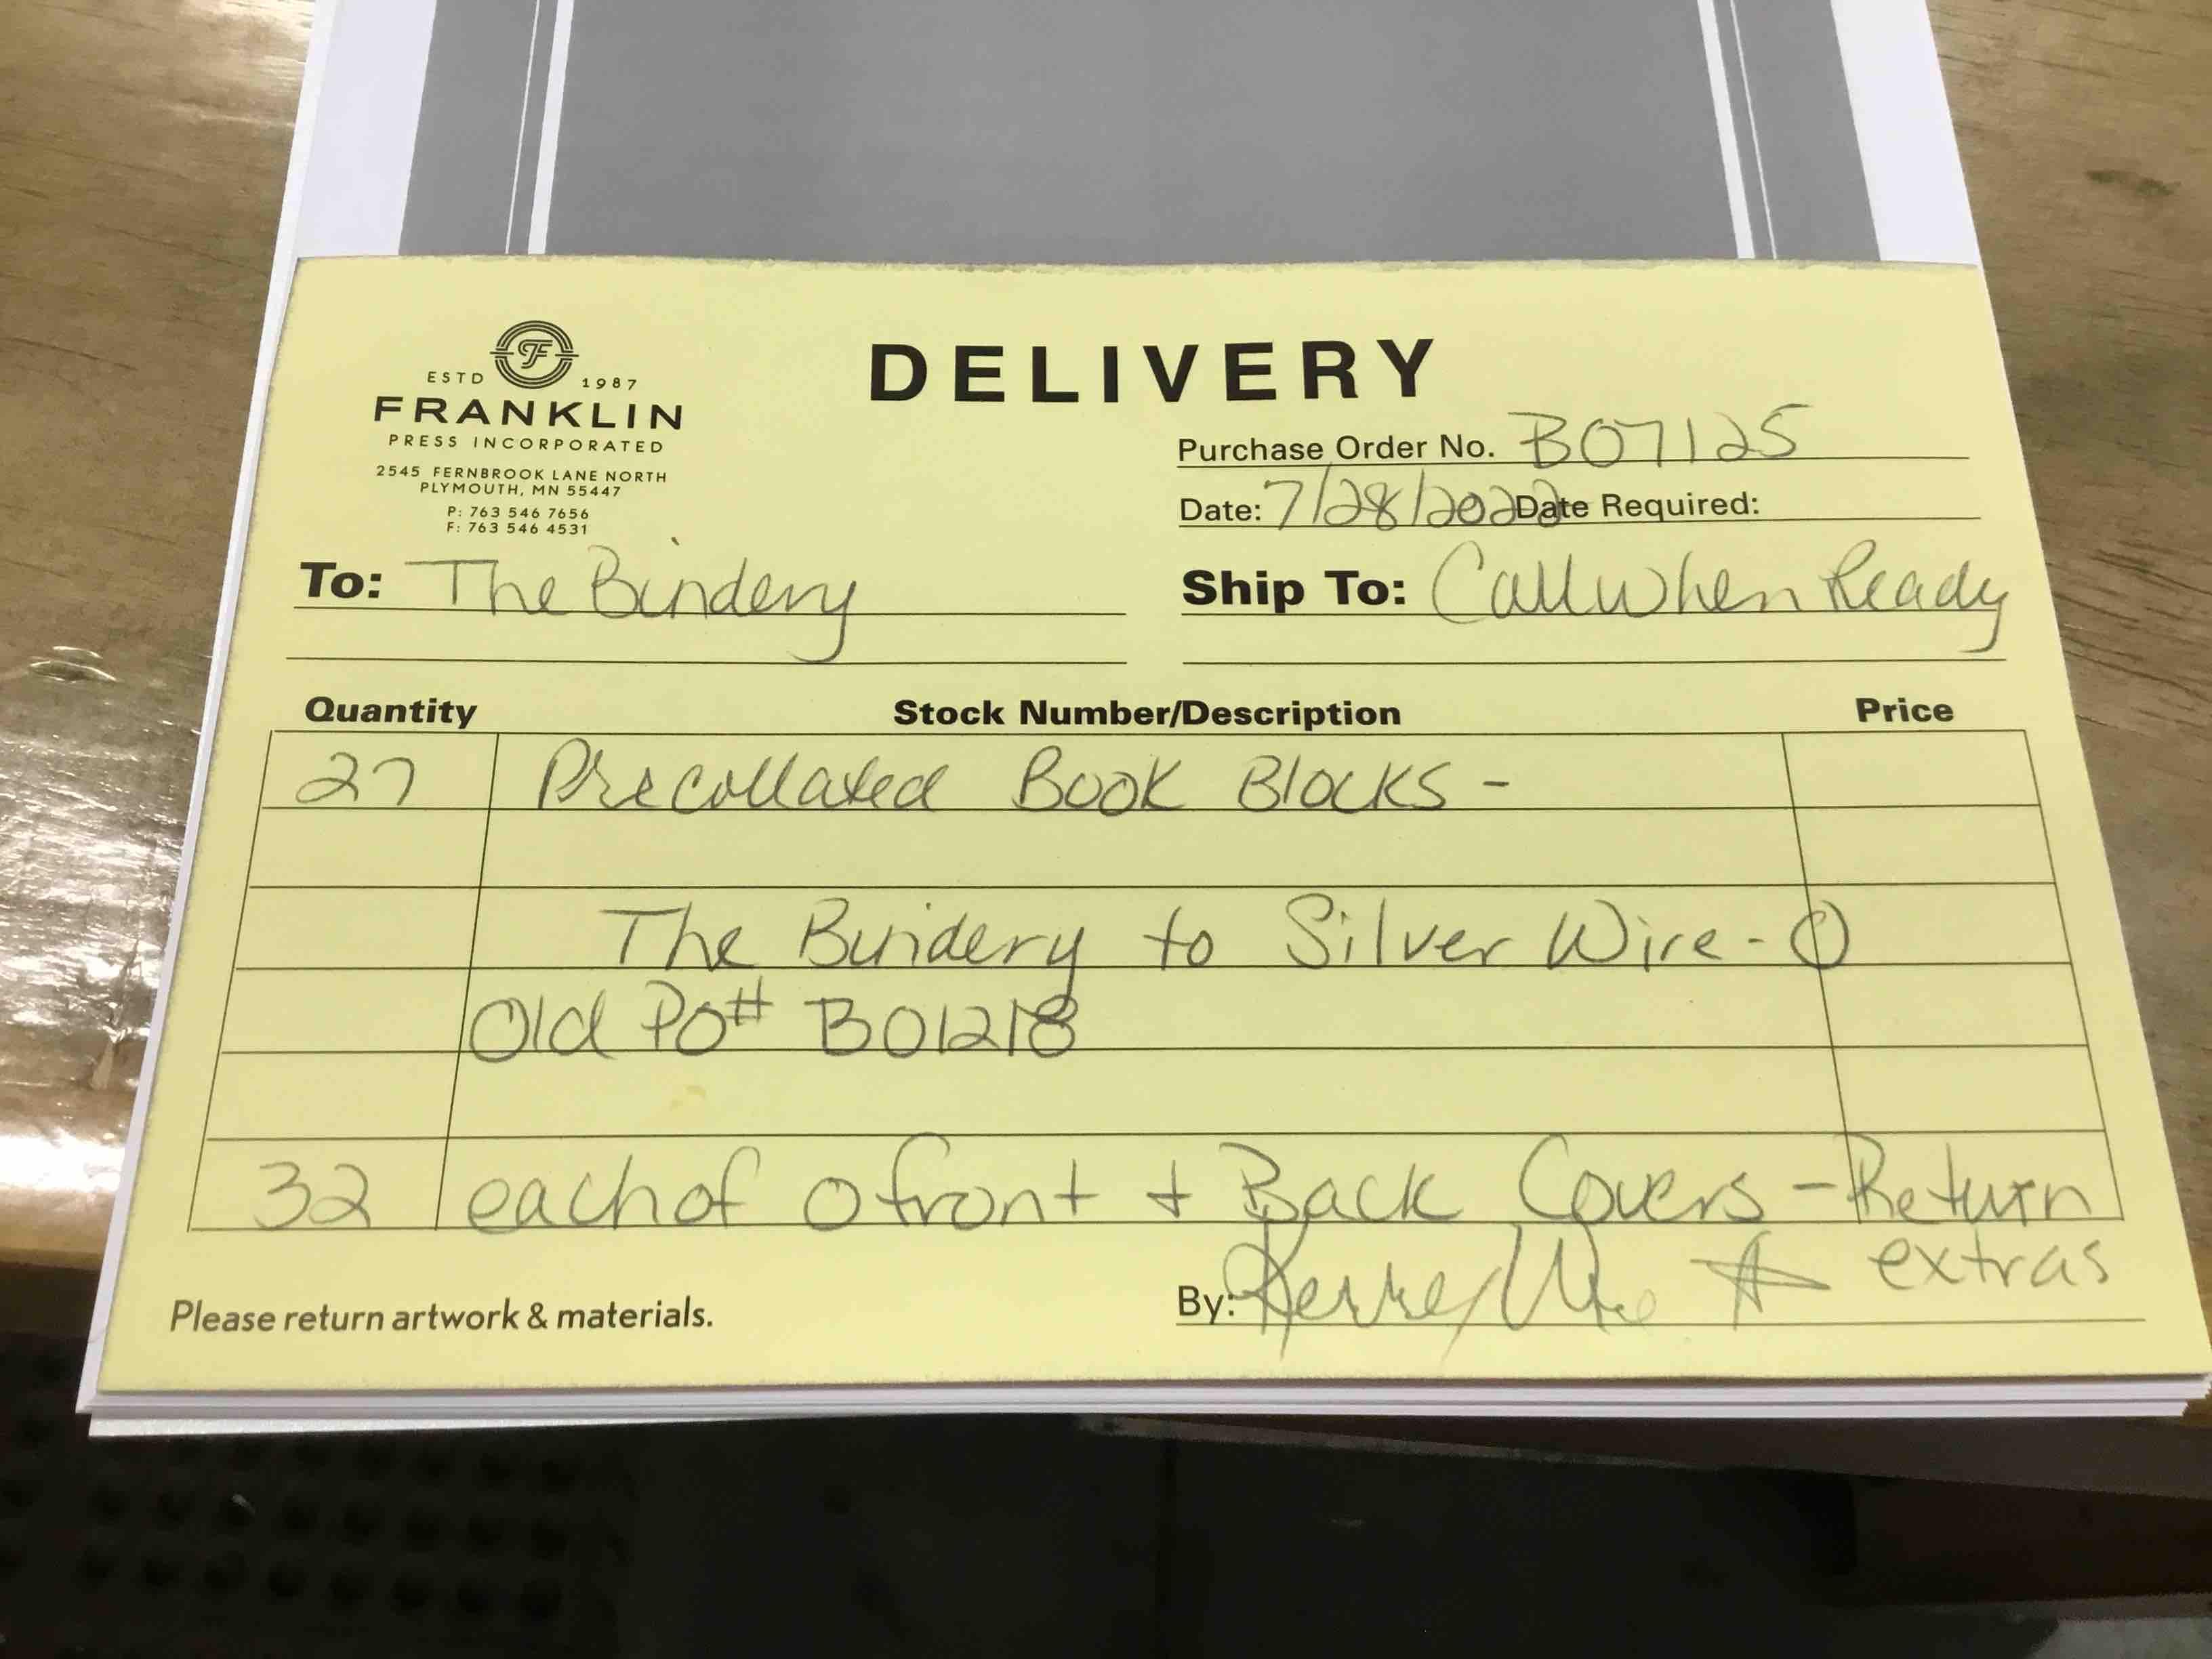 ESTD 1987
FRANKLIN
PRESS INCORPORATED
2545 FERNBROOK LANE NORTH
PLYMOUTH, MN 55447
P: 763 546 7656
F: 763 546 4531
DELIVERY
Purchase Order No. B07125
Date: 7/28/2022 Date Required:
To: The Bindery
Ship To: Call When Ready
Quantity Stock Number/Description Price
27 Precollated Book Blocks -
The Bindery to Silver Wire-O
Old Po# B01218
32 each of front + Back Covers - Return
extras
Please return artwork & materials.
By: